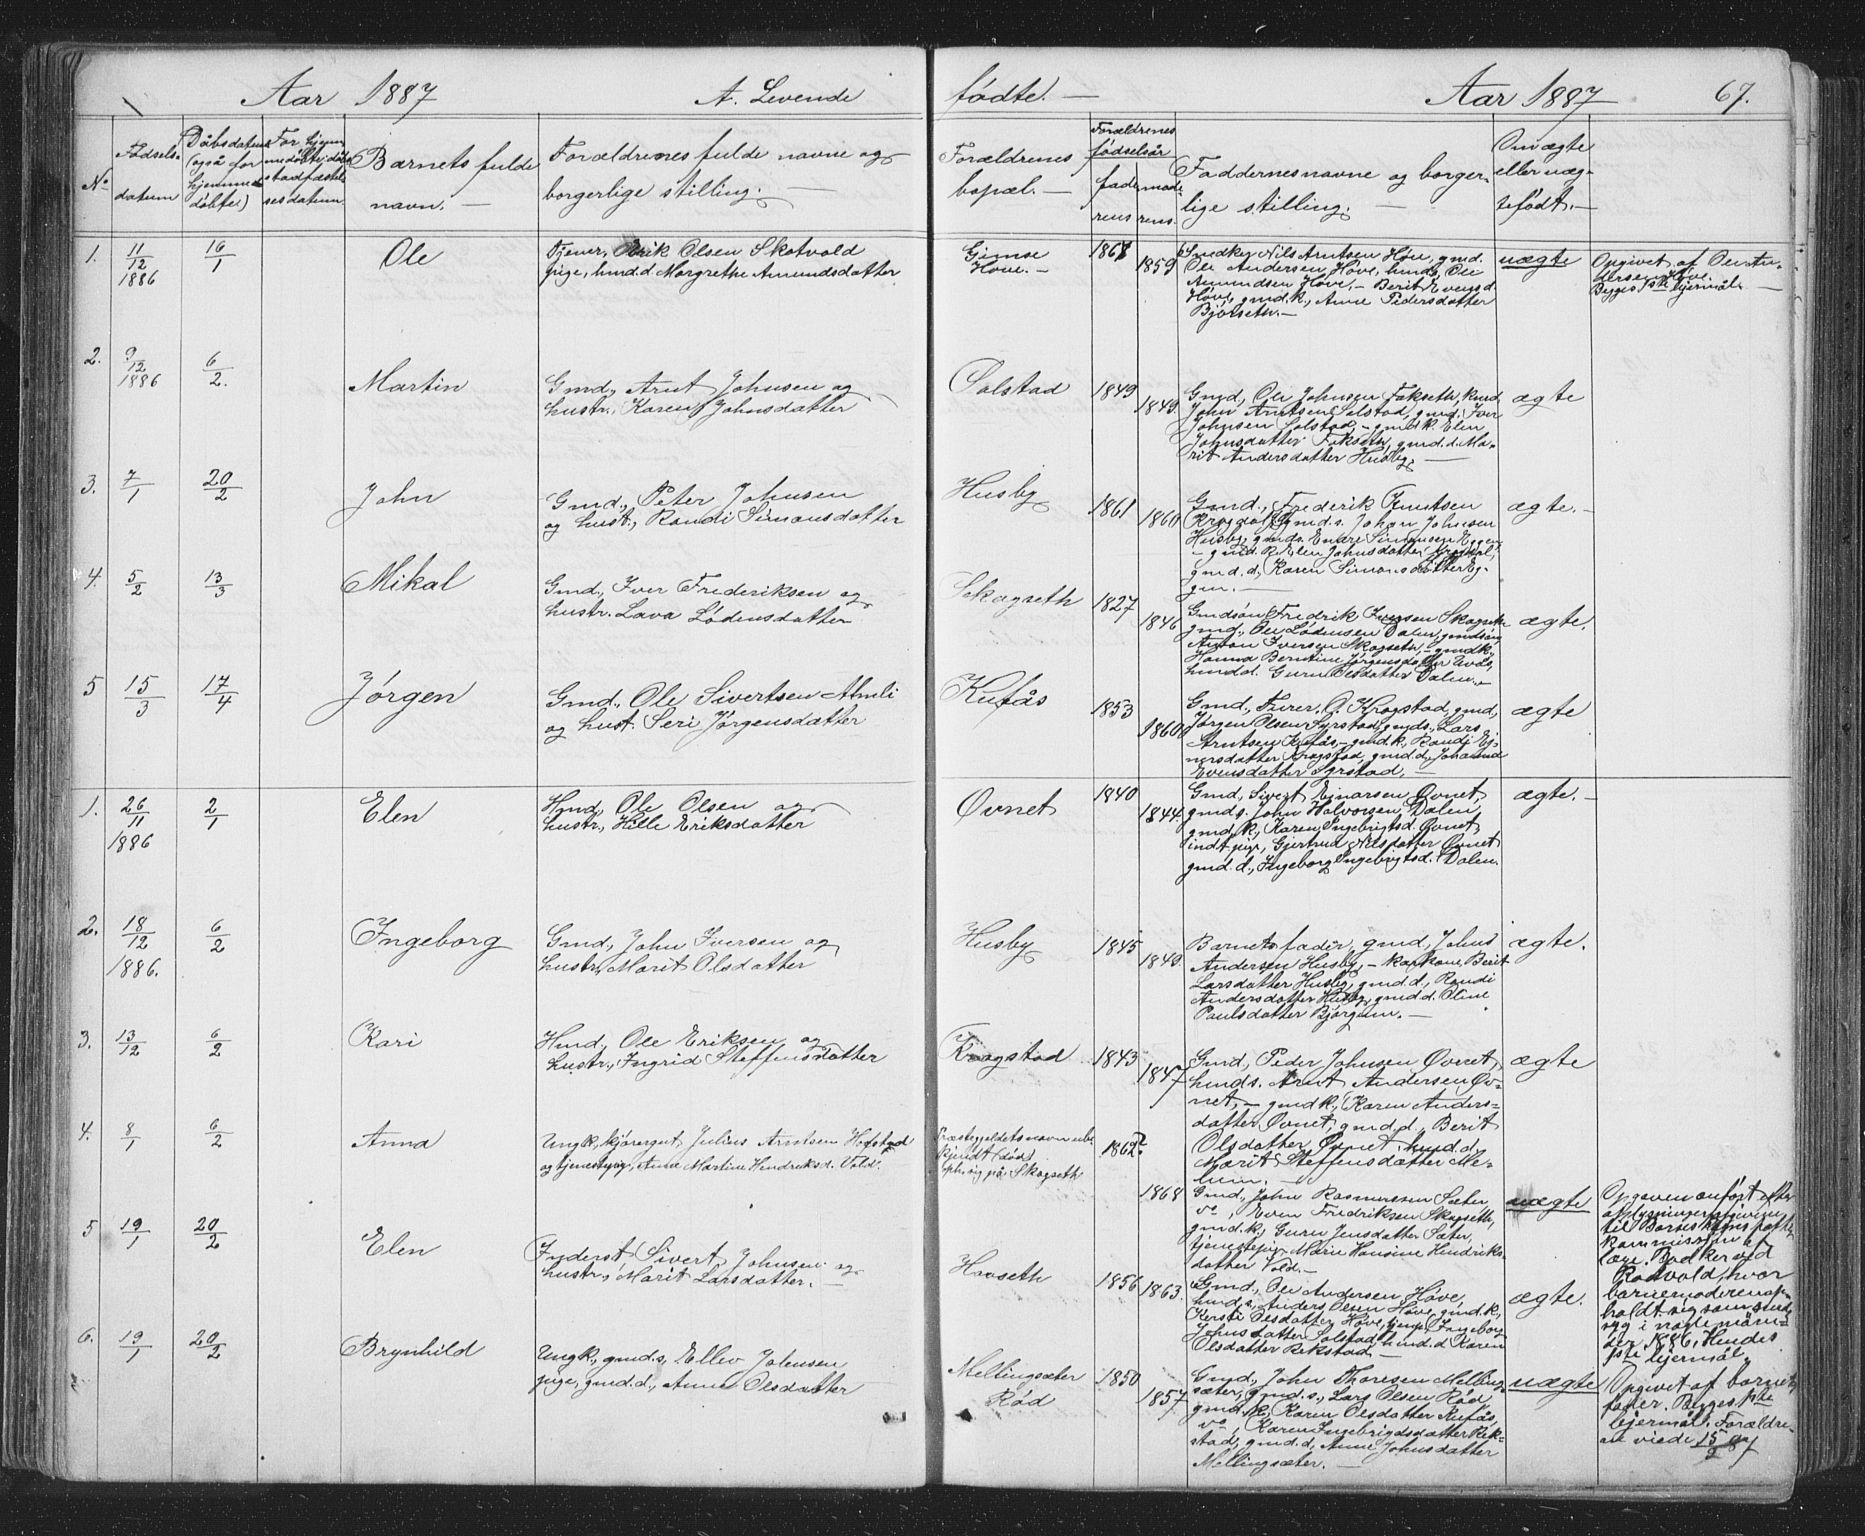 Aar 1887
A. Levende
fødte. —
Aar 1887
67.
No
Fødsels-
datum
Dåbsdatum
(også for
hjemme-
døbte)
For hjem-
medøbte: dåbs
stadfæstel-
sesdatum
Barnets fulde
navn. —
Forældrenes fulde navne og
borgerlige stilling. —
Forældrenes
bopæl. —
Forældrenes
fødselsår
fade-
rens
mode-
rens
Faddernes navne og borger-
lige stilling. —
Om ægte
eller uæg-
tefødt. —
1.
11/12
1886
16/1
Ole
Tjener, Erik Olsen Skotvold
pige, husd.d Margrethe Amundsdatter
Gimse
Hove. —
1861
1859
Nils Arntsen Høve, gmd.
Ole Andersen Høve, hmds, Ole
Amundsen Høve, — Berit Evensd
Høve, gmd.k., Anne Pedersdatter
Bjørseth. —
uægte
Opgivet af Ole An-
dersen Høve.
Begges 1ste lejermål. —
2.
9/12
1886
6/2.
Martin
Gmd., Arnt Johnsen og
hustr., Karen Johnsdatter
Solstad
1849
1849.
Gmd., Ole Johnsen Fokseth,
John Arntsen Solstad, gmd. Iver
Johnsen Solstad, — gmd.k. Elen
Johnsdatter Fokseth, gmd.d. Ma-
rit Andersdatter Husby. —
ægte
3.
7/1
20/2
John
Gmd., Peter Johnsen
og hust., Randi Simonsdatter
Husby
1861
1860
Gmd., Frederik Knutsen
Krogdal, gmd.s. Johan Johnsen
Husby, gmds. Endre Simonsen Eggen
— gmd.k. Elen Johnsdatter Krogdal,
gmd.d., Karen Simonsdatter Eg-
gen. —
ægte. —
4.
5/2
13/3
Mikal
Gmd., Iver Frederiksen og
hustr. Lava Lødensdatter
Skogseth
1827
1846
Gmdsøn Fredrik Iversen Skogseth
gmd., Ole Lødensen Dalen, gmdsøn
Anton Iversen Skogseth, — gmd.k,
Hanna Berntine Jørgensdatter
hmd.d. Guru Olsdatter Dalen. —
ægte.
5
15/3
17/4
Jørgen
Gmd., Ole Sivertsen Almli
og hust. Seri Jørgensdatter
Kufås
1853
1860
Gmd., O. Krogstad, gmd.,
Jørgen Olsen Syrstad, gmds., Lars
Arntsen Kufås, — gmd.k., Randi Ej-
nersdatter Krogstad, gmd.d.
Evensdatter Syrstad. —
ægte
1.
26/11
1886
2/1
Elen
Hmd., Ole Olsen og
hustr., Hille Eriksdatter
Øvnet
1840
1844.
Gmd., Sivert Einarsen Øvnet,
gmds. John Halvorsen Dalen,
gmd.k., Karen Ingebrigtsd. Øvnet
indt. pige, Gjertrud Nilsdatter Øvnet
gmd.d., Ingeborg Ingebrigtsd. Dalen.
ægte. —
2.
18/12
1886.
6/2
Ingeborg
Gmd., John Iversen og
hustr., Marit Olsdatter
Husby
1845
1840.
Barnets fader, gmd, Johns
Andersen Husby, — Berit
Larsdatter Husby, gmd.d., Randi
Andersdatter Husby, gmd.d. Oline
Paulsdatter Bjørgum. —
ægte.
3.
13/12
6/2
Kari
Hmd., Ole Eriksen og
hustr., Ingrid Steffensdatter
Krogstad
1843
1847
Gmd., Peder Johnsen Øvnet,
hmds. Arnt Andersen Øv-
net, — gmd.k., Karen Anders-
datter Øvnet, gmd.d., Berit
Olsdatter Øvnet, hmd.d.
Marit Steffensdatter Me-
lum. —
ægte
4.
8/1
6/2
Anna
Ungk., Julius Arntsen Hofstad
og tjenestepige, Anne Martine Hendriksd. Vold.
Præstegjeldets navn ube
kjendt (død)
oph. sig på Skogseth
1862?
1868
Gmd., John Rasmussen Sæter,
vo, Even Fredriksen Skogseth,
gmd.k., Guru Jensdatter Sæter,
tjenestepige Marie Hansine Hendriks-
datter Vold. —
uægte
Opgaven anført efter
oplysninger givne
til Børnes
kommission af
lære. Bodker ved
Rotvold, hvor
barnemoderen op-
holdt sig som sinds-
syg i nogle måne-
der 1886. Hendes
1ste lejermål
5
19/1
20/2
Elen
Inderst, Sivert Johnsen og
hustr., Marit Larsdatter. —
Hovseth
1856
1863.
Gmd., Ole Andersen Høve,
hmd.s., Anders Olsen Høve, gmd.k.,
Kersti Olsdatter Høve, tjenp. Ingeborg
Johnsdatter Solstad, hmd.d Karen
Olsdatter Rekstad. —
ægte.
6.
19/1
20/2
Brynhild
Ungk., gmd.s, Ellev Johnsen
pige, gmd.d., Anne Olsdatter
Mellingsæter
Rød
1850
1857
Gmd., John Thoresen Melling-
sæter, gmd.s., Lars Olsen Rød,
gmd.k., Karen Olsdatter Kufås,
vo, Karen Ingebrigtsdatter Rek-
stad, gmd.d., Anne Johnsdatter
Mellingsæter. —
uægte
Opgivet af barnets
fader. Begges 1ste
lejermål. Forældre-
ne viede 15/2 87